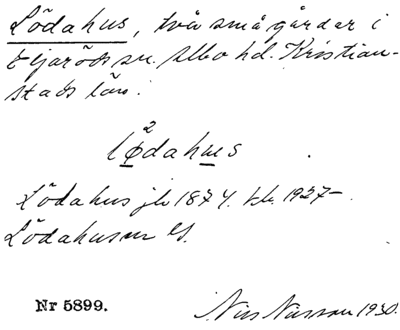 Lödahus, två små gårdar i
Eljaröds sn. Albo hd. Kristian-
stads län.
2
lødahus
Lödahus jb 1874. 1927-
Lödahusen
Nr 5899.
Nils Nilsson 1930.